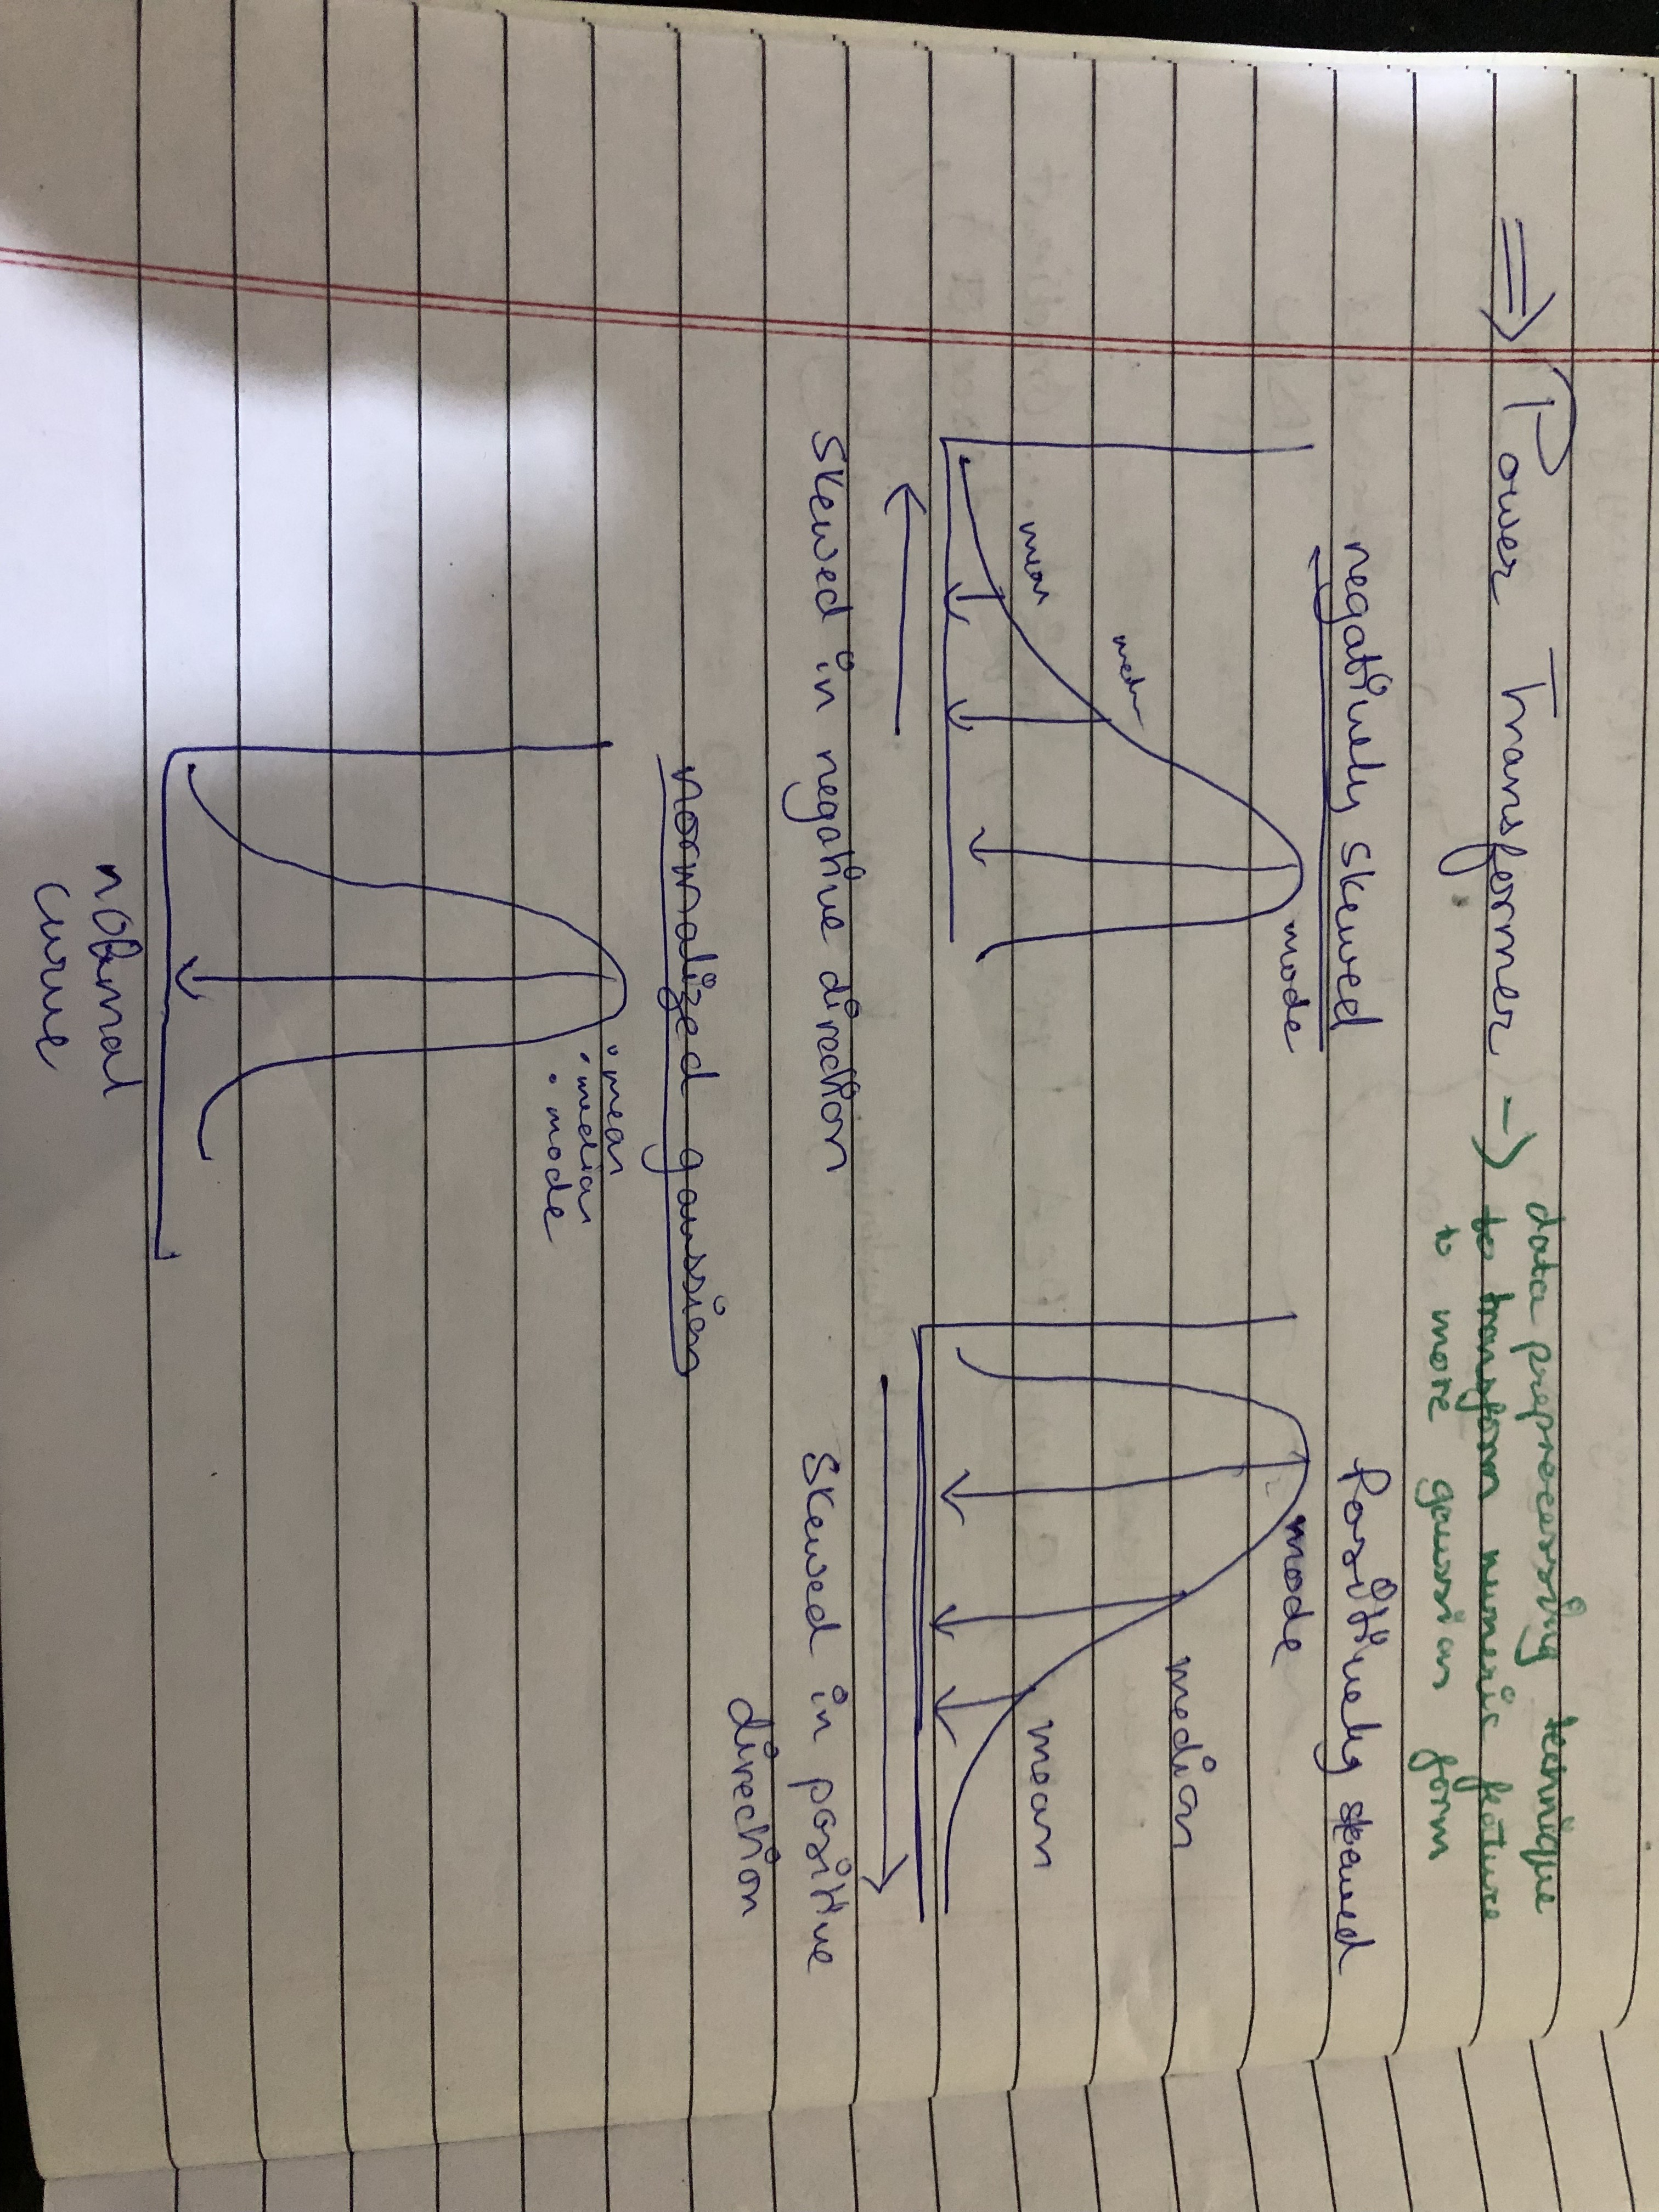 ⇒ Power Transformer → data preprocessing technique
to transform numeric feature
to more gaussian form
negatively skewed
mode
mean
Skewed in negative direction
Positively skewed
mode
median
mean
Skewed in positive
direction
normalized gaussian
• mean
• median
• mode
normal
curve